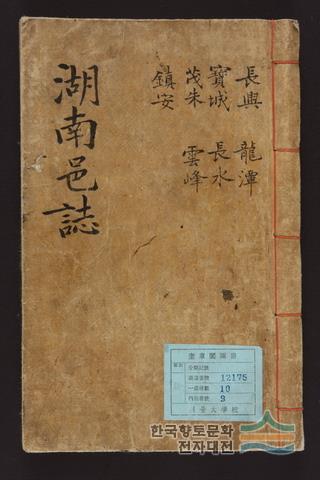 湖南邑誌
長興 龍潭
寶城 長水
茂朱 雲峰
鎭安
奎章閣圖書
12175
10
9
서울大學校
한국향토문화
전자대전